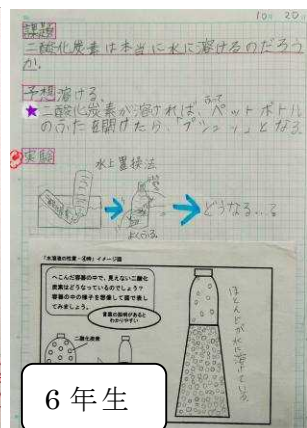 10月20日
課題
二酸化炭素は本当に水に溶けるのだろう
か。
予想 溶ける。
★二酸化炭素が溶ければ、ペットボトル
のふたを開けたら、「プシュッ」となる
実験
水上置換法
よくふる
どうなる…?
「水溶液の性質・④時」イメージ図
へこんだ容器の中で、見えない二酸化
炭素はどうなっているのでしょう?
容器の中の様子を想像して図で表し
てみましょう。
言葉の説明があると
わかりやすい
二酸化炭素
ほとんどが水に溶けている。
6年生